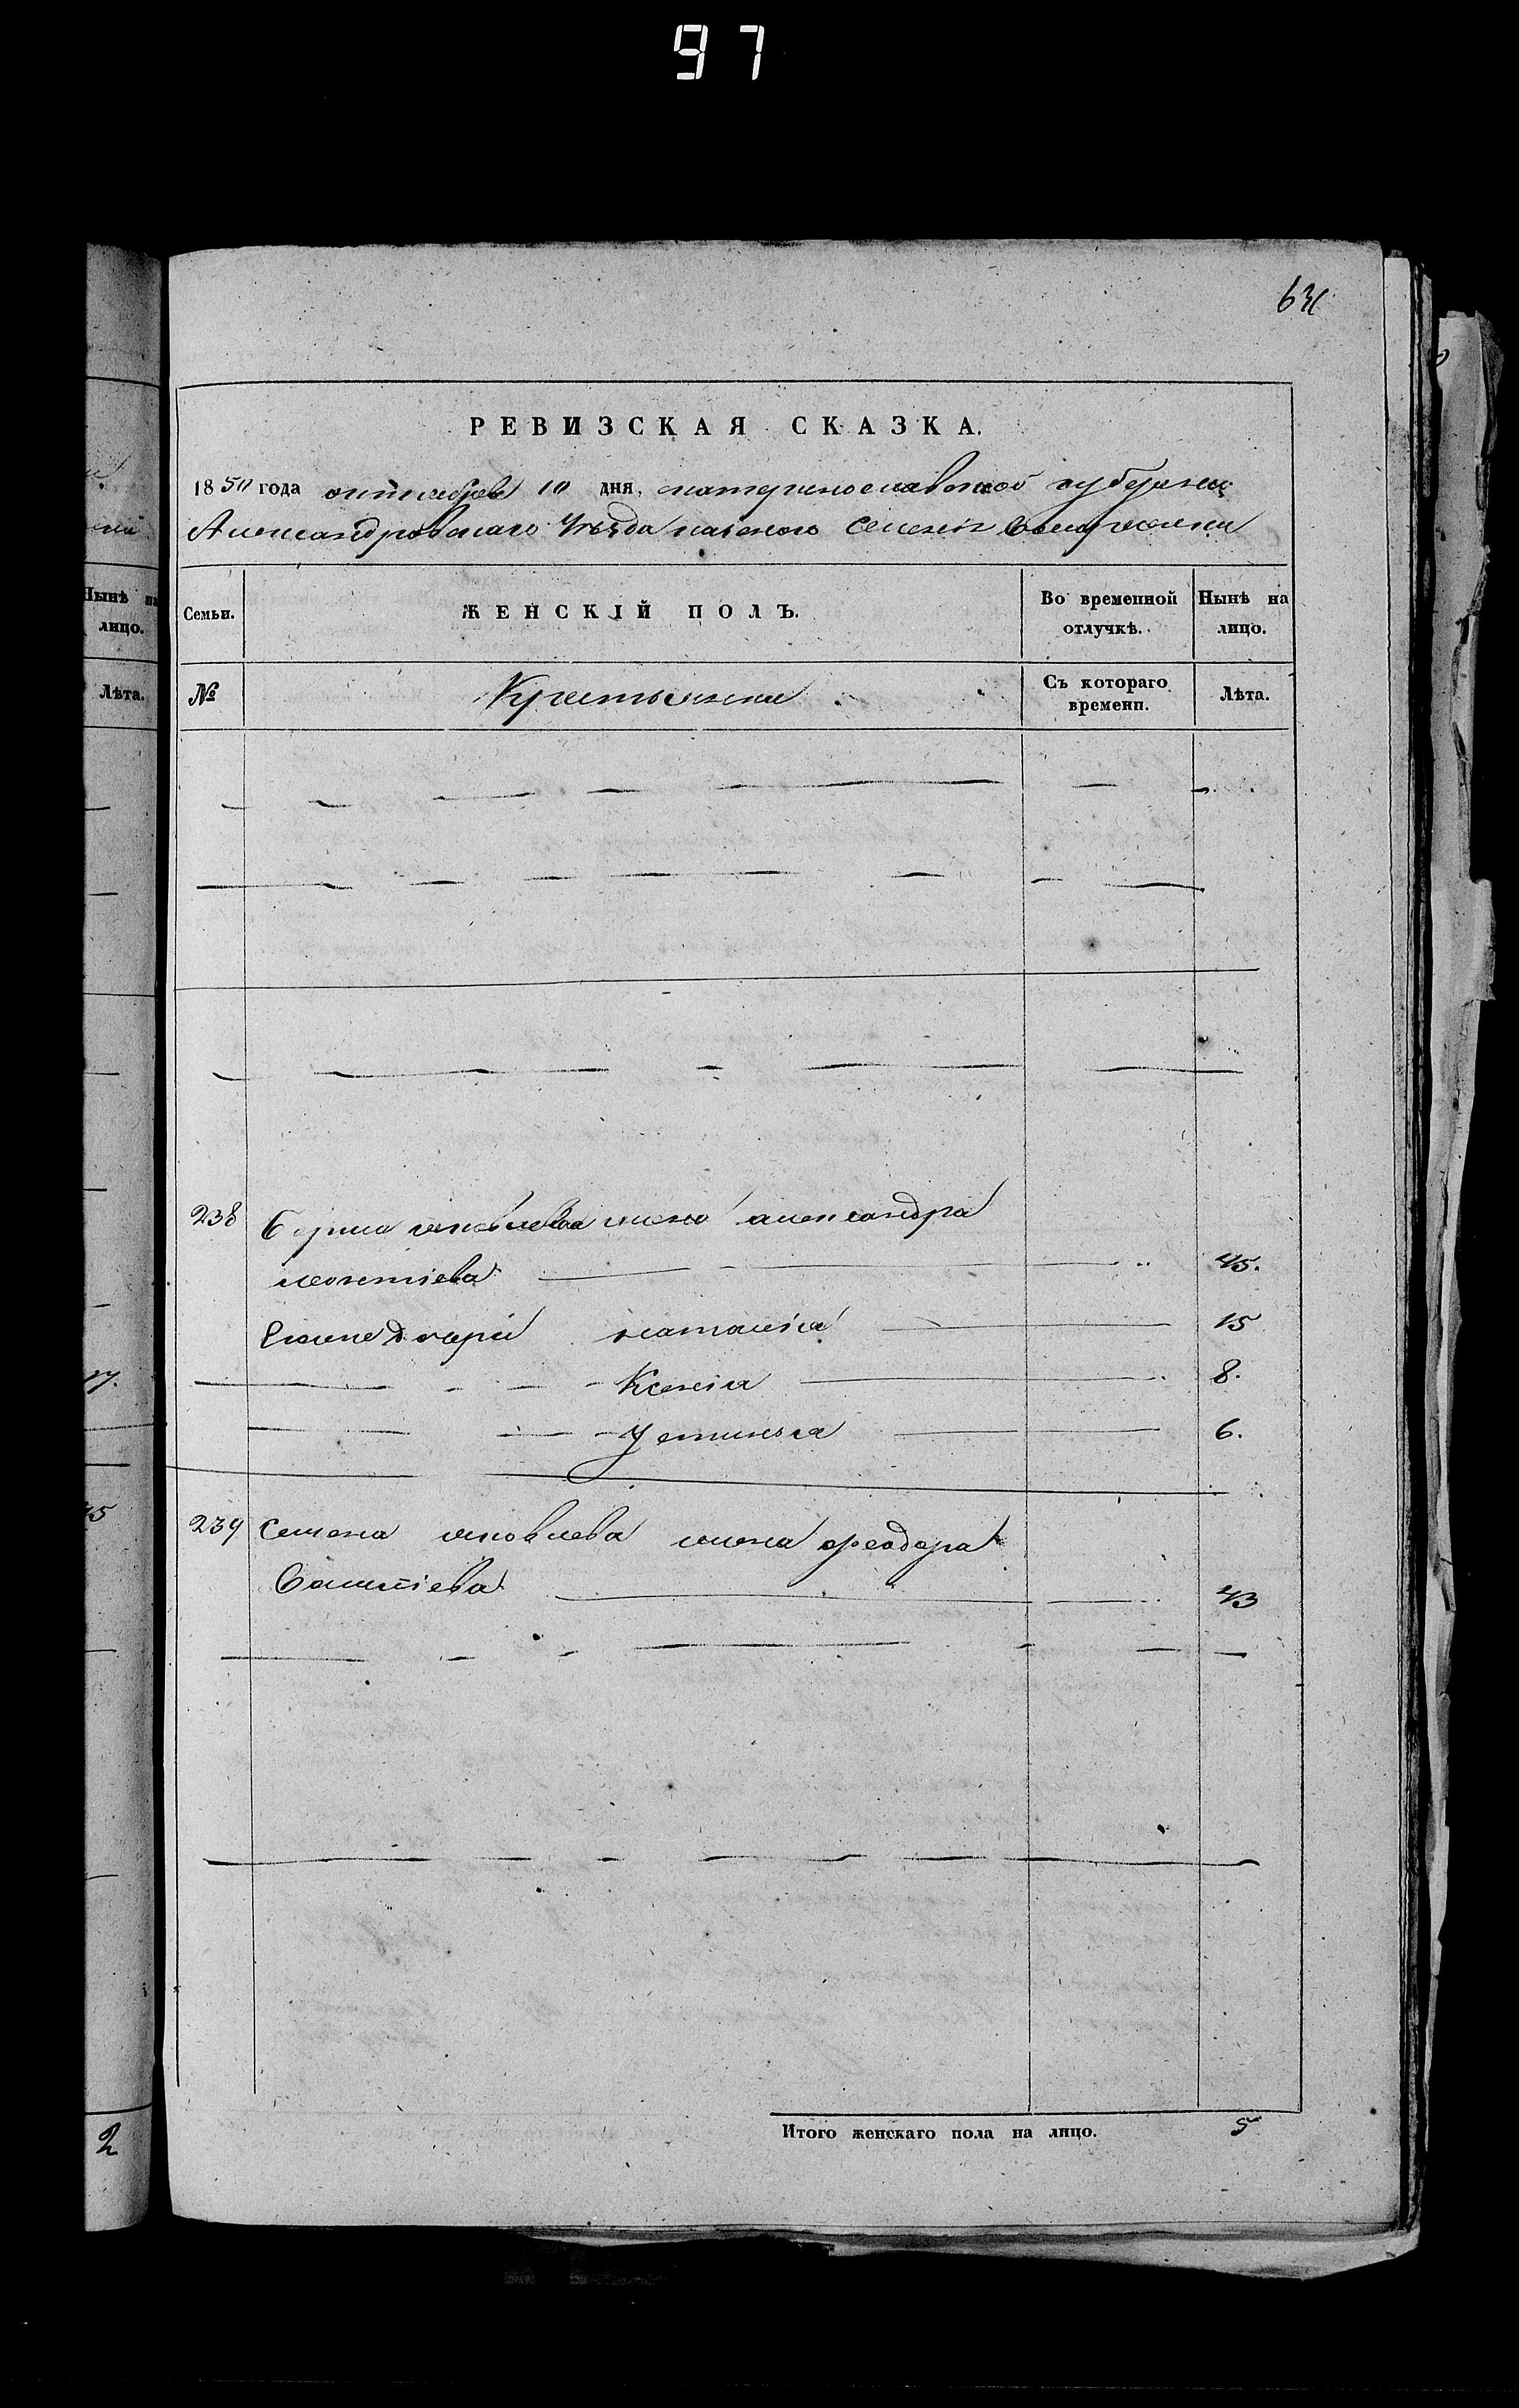 97
РЕВИЗСКАЯ СКАЗКА.
1850 года октября 10 дня, катеринославской губернии
Александровскаго Уезда казеного Селения
Семьи. ЖЕНСКІЙ ПОЛЪ. Во временной отлучкѣ. Нынѣ на лицо.
№ Крестьянки Съ котораго времени. Лѣта.
238 яковлева жена александра
леонтіева 45.
Его дочери наталія 15
Ксенія 8.
Устинья 6.
239 Семена яковлева жена феодора
Савитіева 43
Итого женскаго пола на лицо. 5
Нынѣ на
лицо.
Лѣта.
17.
45
2